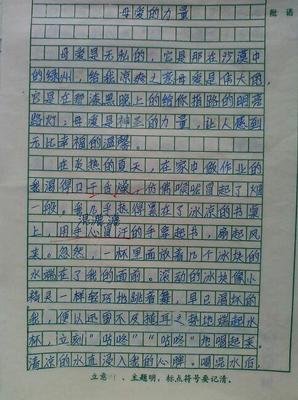 批语
母爱的力量
母爱是无私的，它是那在沙漠中
的绿洲，给我凉爽之意母爱是伟大的，
它是在那漆黑晚上的给你指路的明亮
路灯；母爱是神圣的力量，让人感到
无比幸福的温馨。
在炎热的夏天，在家中做作业的
我渴得口干舌燥，仿佛喉咙冒起了烟
一般。我
热得累在了冰凉的书桌
上，用手心直汗的手拿起书，扇起风
来。忽然，一杯里面放着几个冰块的
水端在了我的面前。滚动的冰块像小
精灵一样轻巧地跳着舞，早已渴坏的
我，便以迅雷不及掩耳之势地端起水
杯，立刻“咕咚”“咕咚”地喝起来。
清凉的水直浸入我的心脾。喝完水后，
立意 、主题明，标点符号要记清。